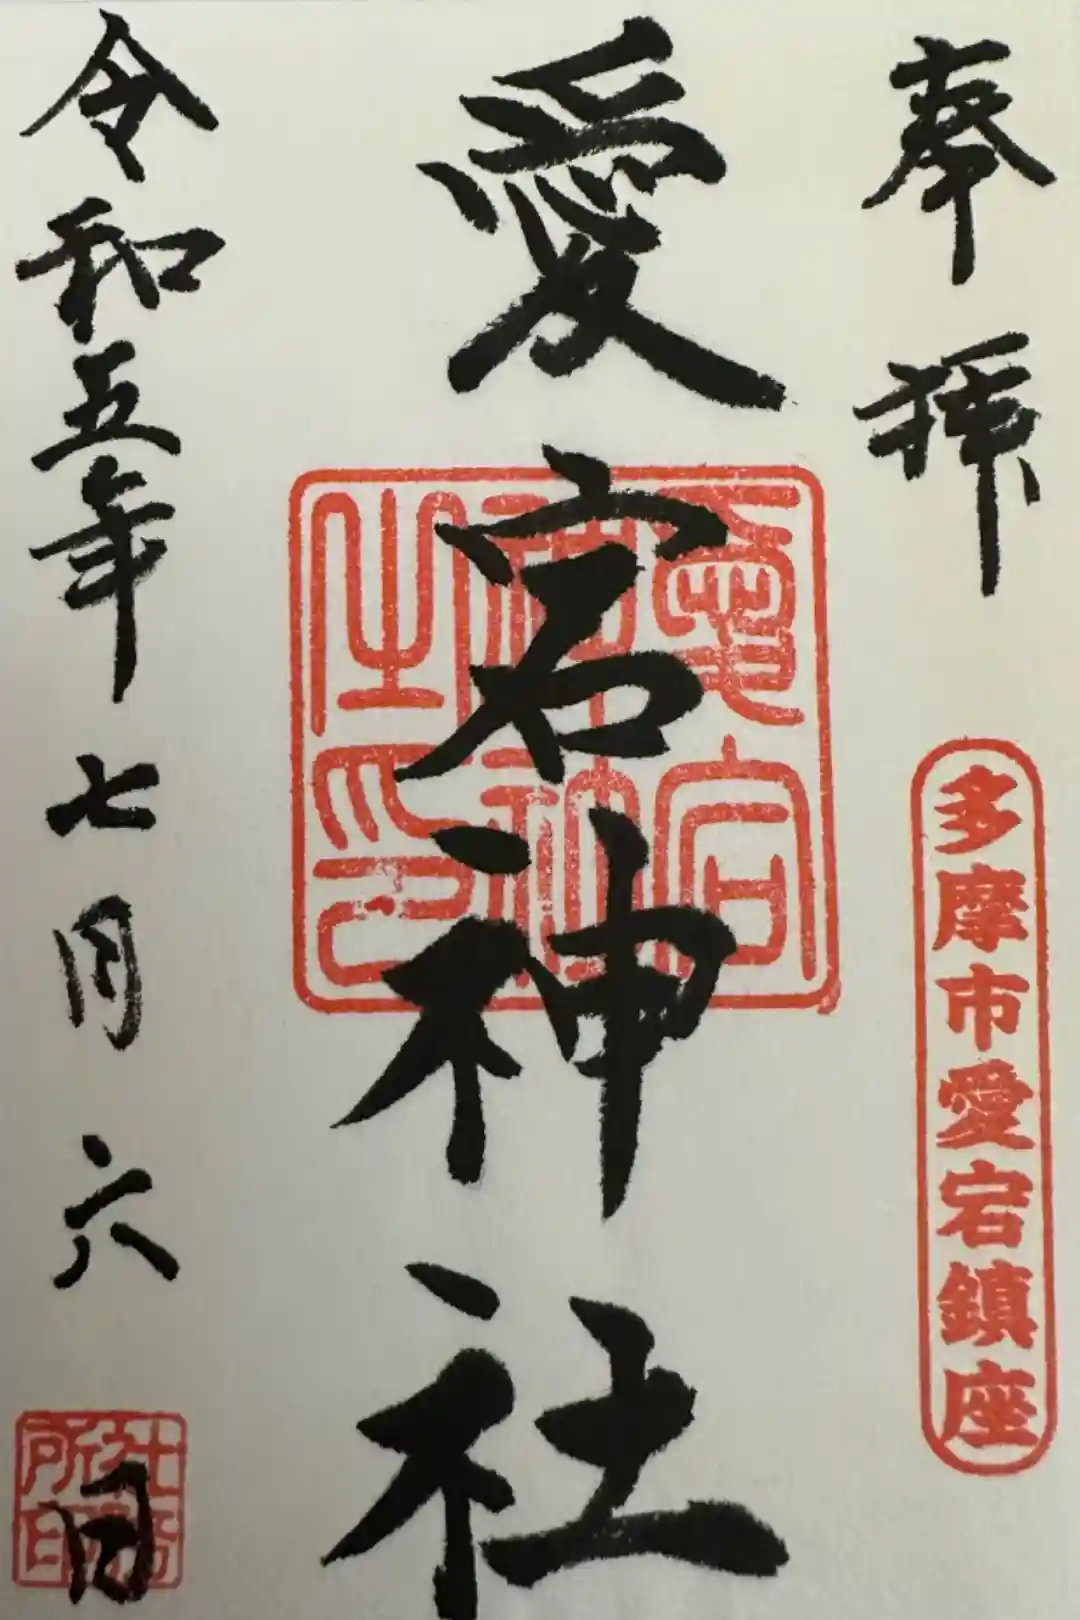 奉拝
多摩市愛宕鎮座
愛宕神社
愛宕
神社
之印
令和五年七月六日
社務
所印